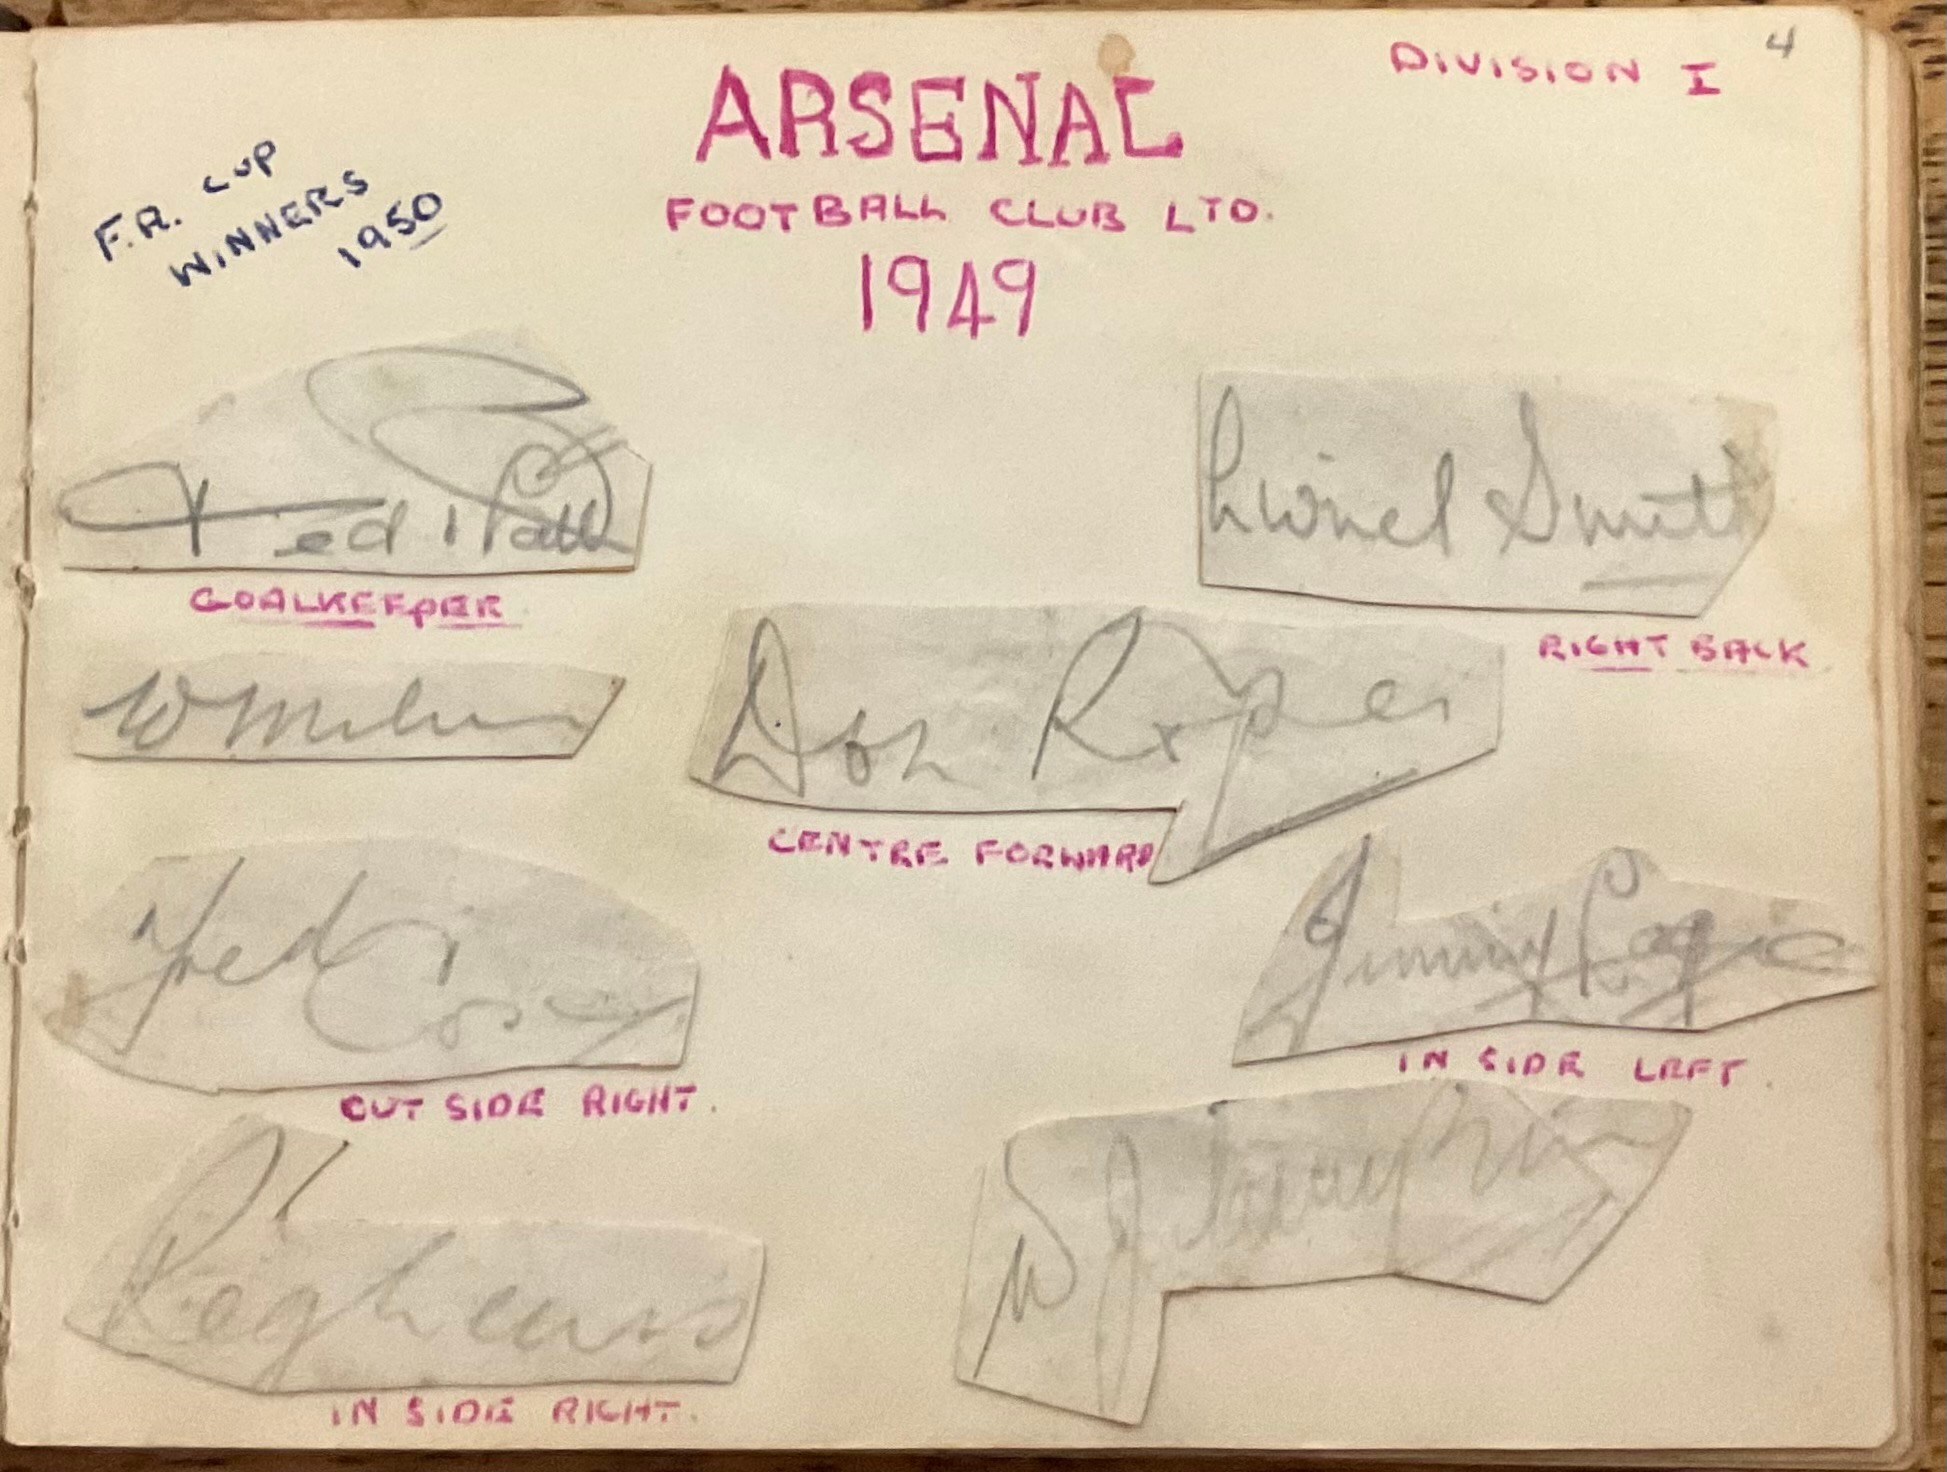 4
DIVISION I
ARSENAL
FOOTBALL CLUB LTD.
1949
F.A. CUP
WINNERS
1950
Ted Platt
GOALKEEPER
Lionel Smith
RIGHT BACK
W Milne
Don Roper
CENTRE FORWARD
Fred Cox
OUT SIDE RIGHT.
Jimmy Logie
IN SIDE LEFT.
Reg Lewis
IN SIDE RIGHT.